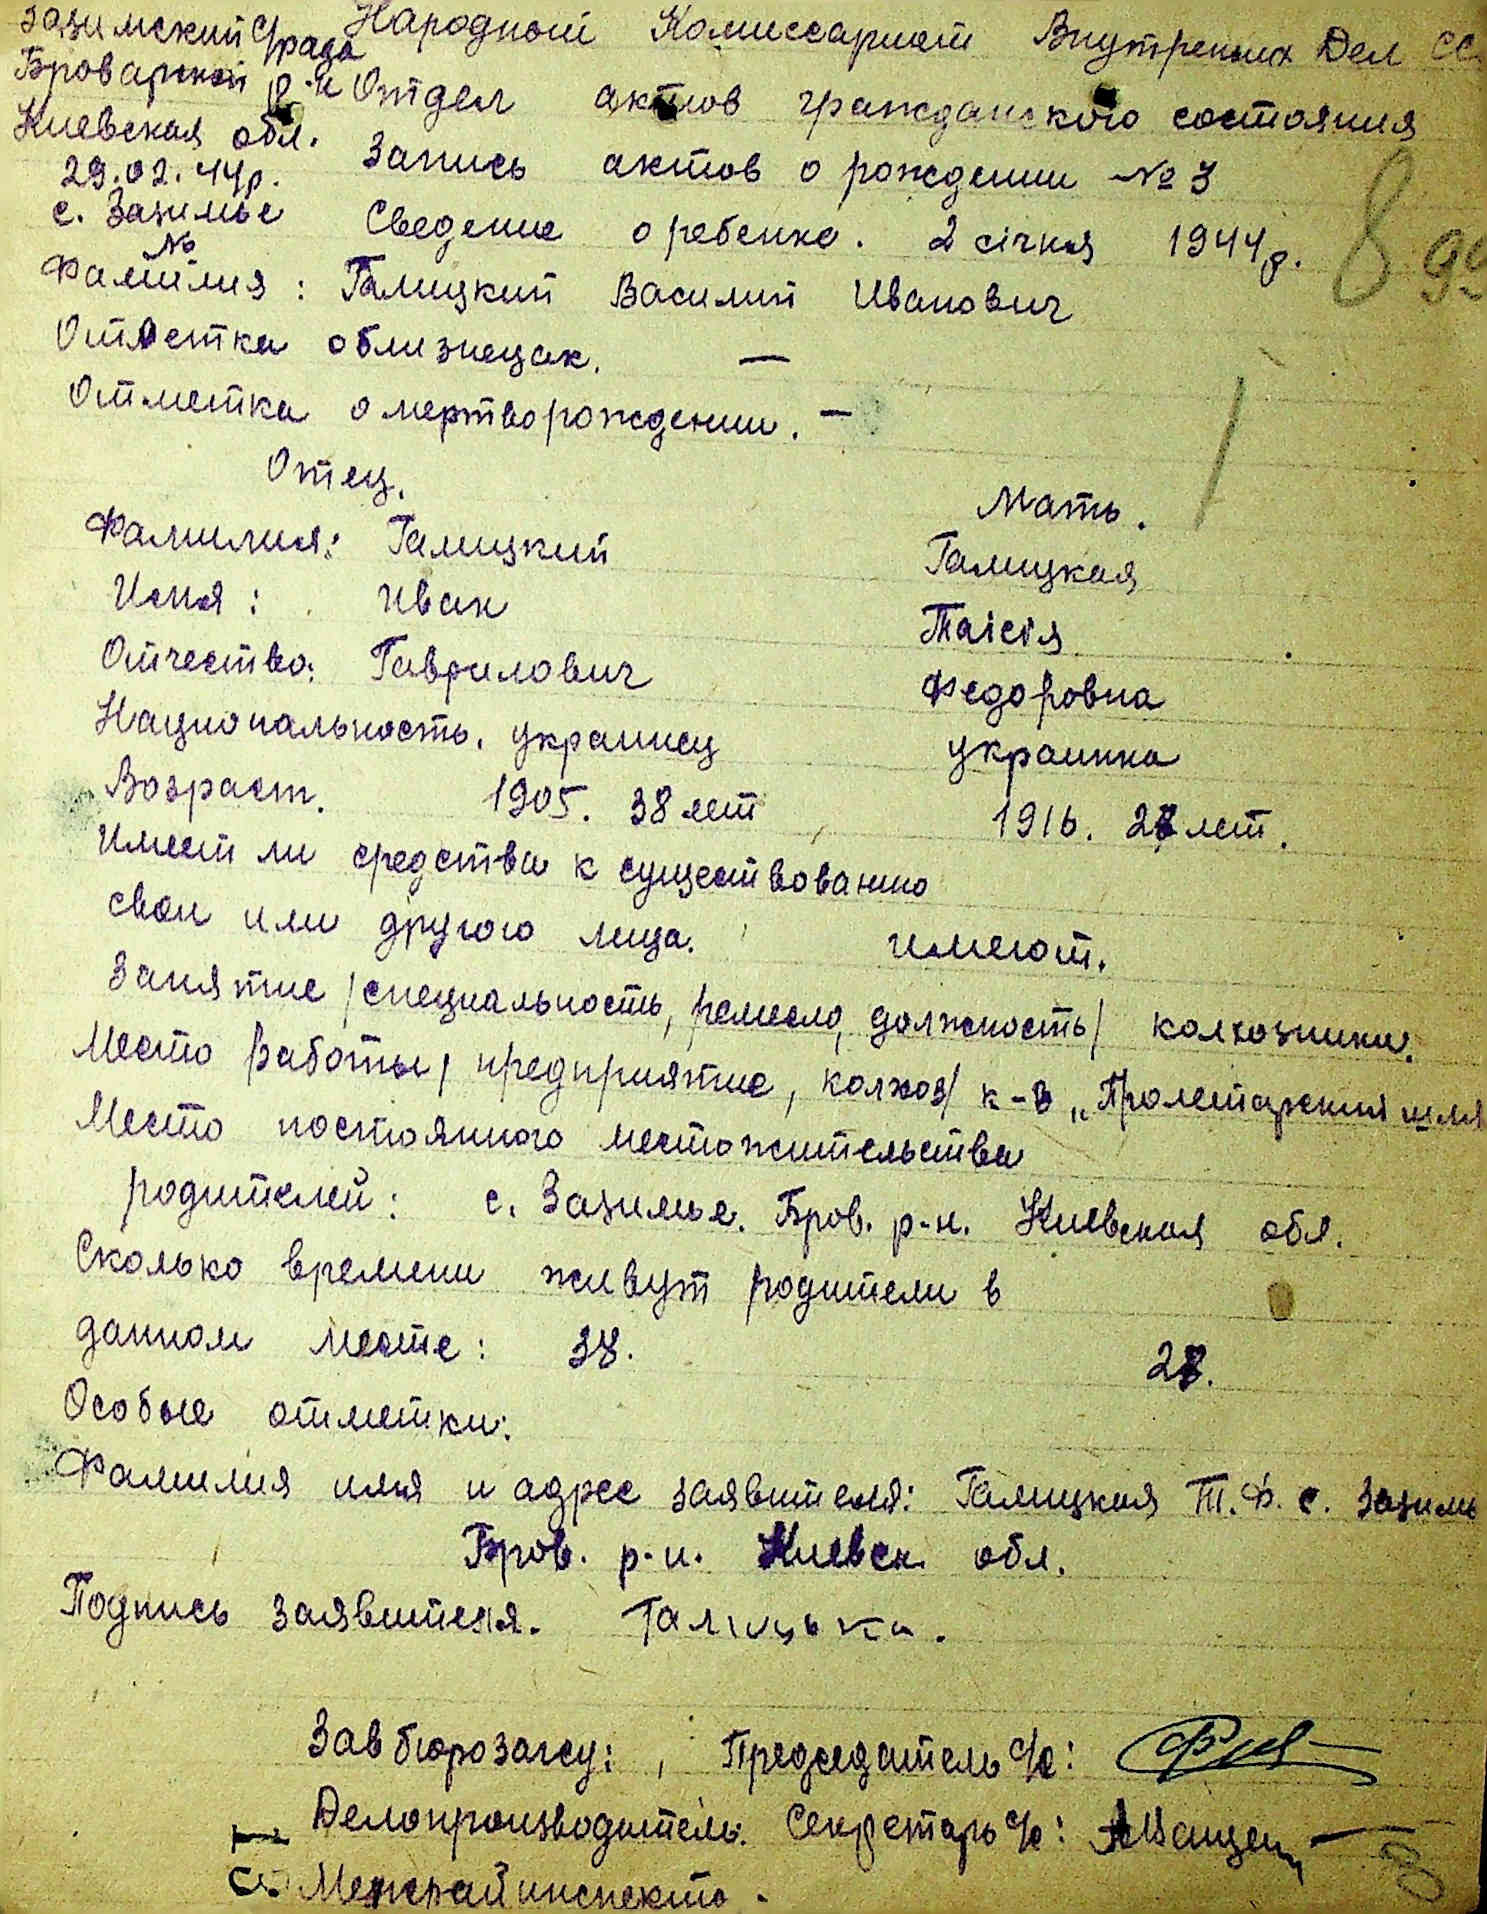 Зазимский с/рада
Броварской р-н
Киевская обл.
29.02.44р.
с. Зазимье
№
Народный Комиссариат Внутренних Дел СС
Отдел актов гражданского состояния
Запись актов о рождении № 3
Сведение о ребенке. 2 січня 1944р.
8 99
Фамилия: Галицкий Василий Иванович
Отметка облизнецах. —
Отметка о мертворождении. —
Отец. Мать.
Фамилия: Галицкий Галицкая
Имя: Иван Таісія
Отчество: Гаврилович Федоровна
Национальность. украинец украинка
Возраст. 1905. 38 лет 1916. 27 лет.
Имеет ли средства к существованию
свои или другого лица. имеют.
Занятие /специальность, ремесло, должность/ колхозники.
Место работы / предприятие, колхоз/ к-з „Пролетарский шля
Место постоянного местожительства
родителей: с. Зазимье. Бров. р-н. Киевская обл.
Сколько времени живут родители в
данном месте: 38. 27.
Особые отметки:
Фамилия имя и адрес заявителя: Галицкая Т.Ф. с. Зазимь
Бров. р-н. Киевск. обл.
Подпись заявителя. Галицька.
Зав бюрозагсу: Председатель с/с:
Делопроизводитель. Секретарь с/с:
Межрайинспекто.